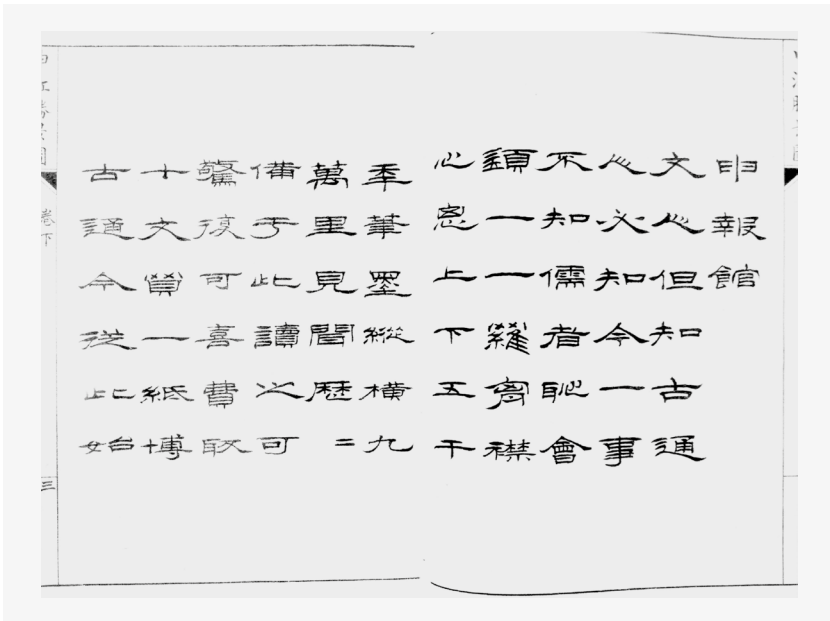 申報館
文人但知古通
人必知今一事
不知儒者恥會
須一一羅胷襟
心思上下五千
秊筆墨縱橫九
萬里見聞歷二
備于此讀之可
驚復可喜費取
十文買一紙博
古通今從此始
申江勝景圖
卷下
三